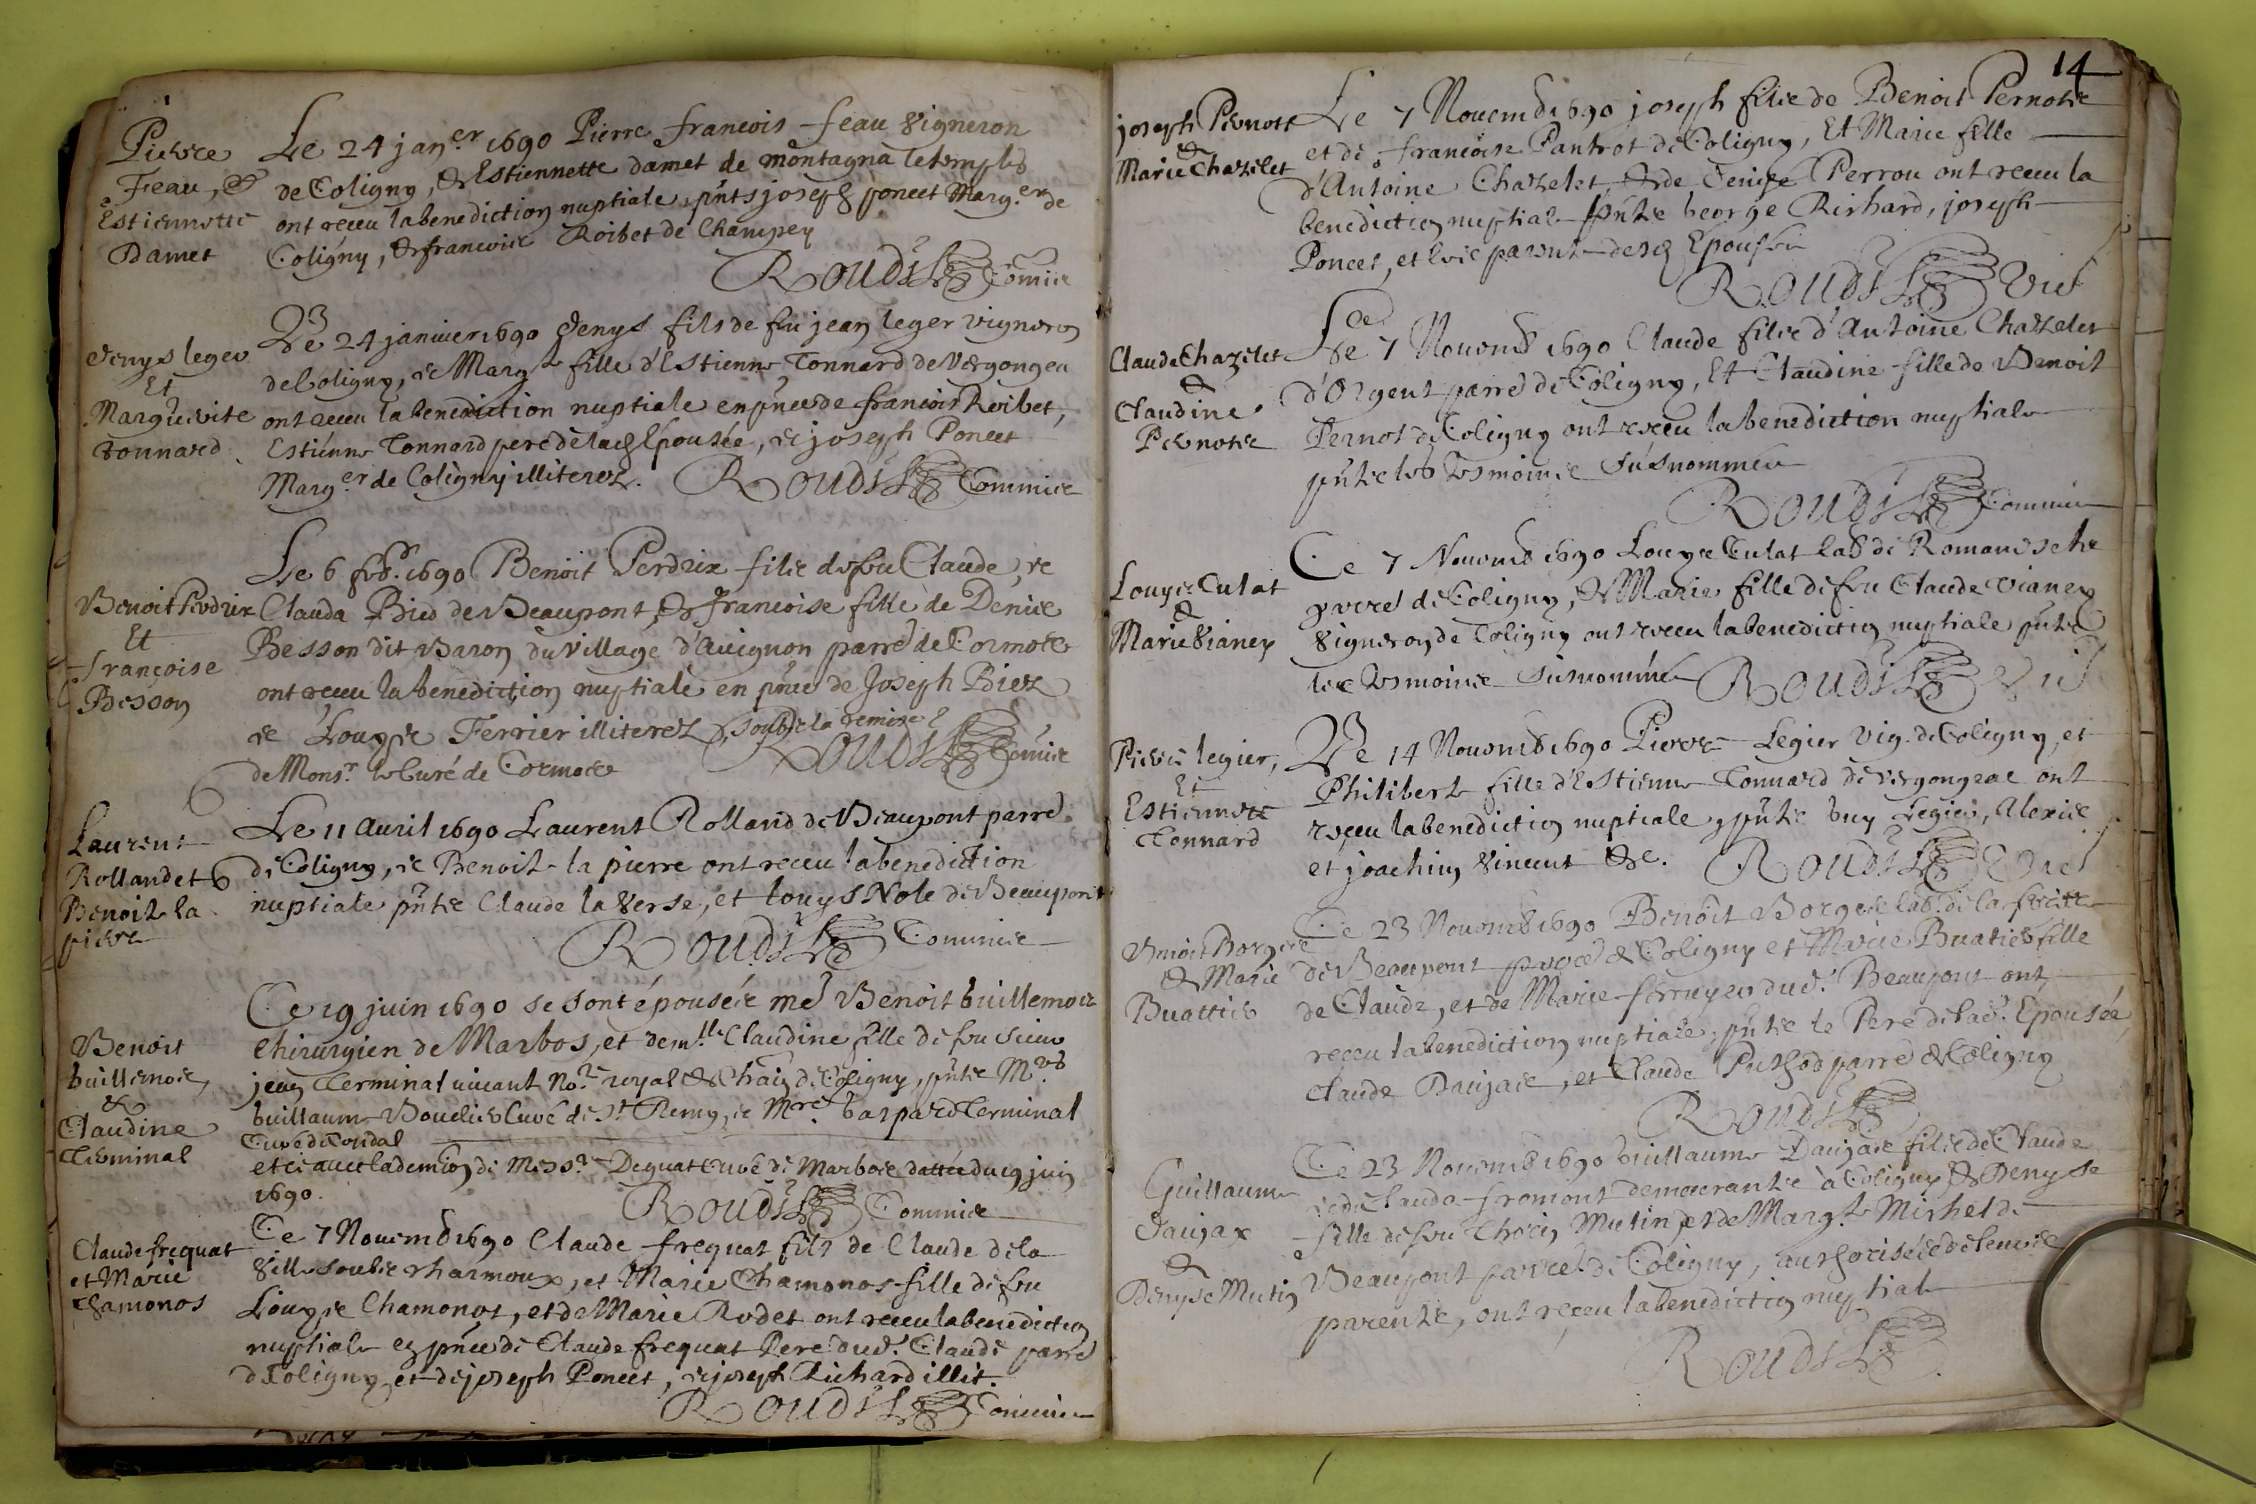 Pierre
Feau, &
Estiennette
Damet
Le 24 jan.er 1690 Pierre francois feau vigneron
de Coligny, & Estiennette damet de montagna
ont receu la benediction nuptiale pnts joseph poncet Marg.er de
Coligny, & francoise Roibet de Champey
Roudet Commis
denys leger
Et
Marguerite
tonnard
Le 24 janvier 1690 denys fils de fu jean leger vigneron
de Coligny, et Marg.te fille d'Estienne Tonnard de Vergongea
ont receu la benediction nuptiale en pnce de francois Roibet,
Estienne Tonnard pere de lad Epousée, et joseph Poncet
Marg.er de Coligny illiterez. Commis
Benoit Perdrix
Et
françoise
Besson
Le 6 feb. 1690 Benoit Perdrix fils de feu Claude, et
Clauda Bied de Beaupont, & francoise fille de Denis
Besson dit Baron du village d'Avignon parr de Cormoz
ont receu la benediction nuptiale en pnce de Joseph Biez
et Louys Ferrier illiterez, soubs la remise
de Monsr. le Curé de Cormoz Commis
Laurent
Rolland et
Benoite la
pierre
Le 11 Avril 1690 Laurent Rolland de Beaupont parr.
de Coligny, et Benoite la pierre ont receu la benediction
nuptiale pnts Claude la Verse, et louys Nole de Beaupont
Commis
Benoit
Guillemot,
&
Claudine
Terminal
Ce 19 juin 1690 se sont épousés me Benoit Guillemot
Chirurgien de Marbos, et dem.lle Claudine fille de feu sieur
jean Terminal vivant No.re royal & Chain de Coligny, pnts Mre
Guillaume Bouclier Curé de St Remy, et Mre Gaspard Terminal
Curé de Condal
et ce avec la demion de Messr. Dequat Curé de Marbos dattée du 19 juin
1690.
Commis
Claude frequat
et Marie
Chamonos
Ce 7 Novemb 1690 Claude frequat fils de Claude de la
ville soubs Charmoux, et Marie Chamonos fille de feu
Louys Chamonos, et de Marie Rodet ont receu la benediction
nuptiale en pnce de Claude frequat Pere dud. Claude parr
de Coligny et de joseph Poncet, et joseph Richard illit.
Commis
14
joseph Pernott
&
Marie Chazelet
Le 7 Novemb 1690 joseph fils de Benoit Pernotte
et de francoise Pantrot de Coligny, Et Marie fille
d'Antoine Chazelet, & de Perrou ont receu la
benediction nuptiale pnts George Richard, joseph
Poncet, et les parents desd Epousés
Claude Chazelet
&
Claudine
Pernotte
Le 7 Novemb 1690 Claude fils d'Antoine Chazelet
d'Orgent parr de Coligny, Et Claudine fille de Benoit
Pernot de Coligny ont receu la benediction nuptiale
pnts les tesmoins susnommés
Commis
Louys Culat
&
Marie Vianey
Ce 7 Novemb 1690 Louys Culat lab de Romaneche
parr de Coligny, & Marie fille de feu Claude Vianey
Vigneron de Coligny ont receu la benediction nuptiale pnts
les tesmoins susnommés
Pierre legier,
Et
Estiennette
Tonnard
Le 14 Novemb 1690 Pierre Legier Vig. de Coligny, et
Philiberte fille d'Estienne Tonnard de vergongeat ont
receu la benediction nuptiale, pnts Guy Legier, Alexis
et joachim Vincent &c.
Benoit Borges
& Marie
Buattier
Ce 23 Novemb 1690 Benoit Borges lab. de la
de Beaupont parr de Coligny et Marie Buatier fille
de Claude, et de Marie dud. Beaupont ont
receu la benediction nuptiale, pnts le Pere de lad. Epousée
Claude Daujat, et Claude Puthod parr de Coligny
Guillaume
Daujax
&
Denyse Mutin
Ce 23 Novemb 1690 Guillaume Daujat fils de Claude
et de Clauda fromont demeurants à Coligny, & Denyse
fille de feu Mutin, et de Marg.te Michel de
Beaupont parr. de Coligny, authorisés de leurs
parents, ont receu la benediction nuptiale